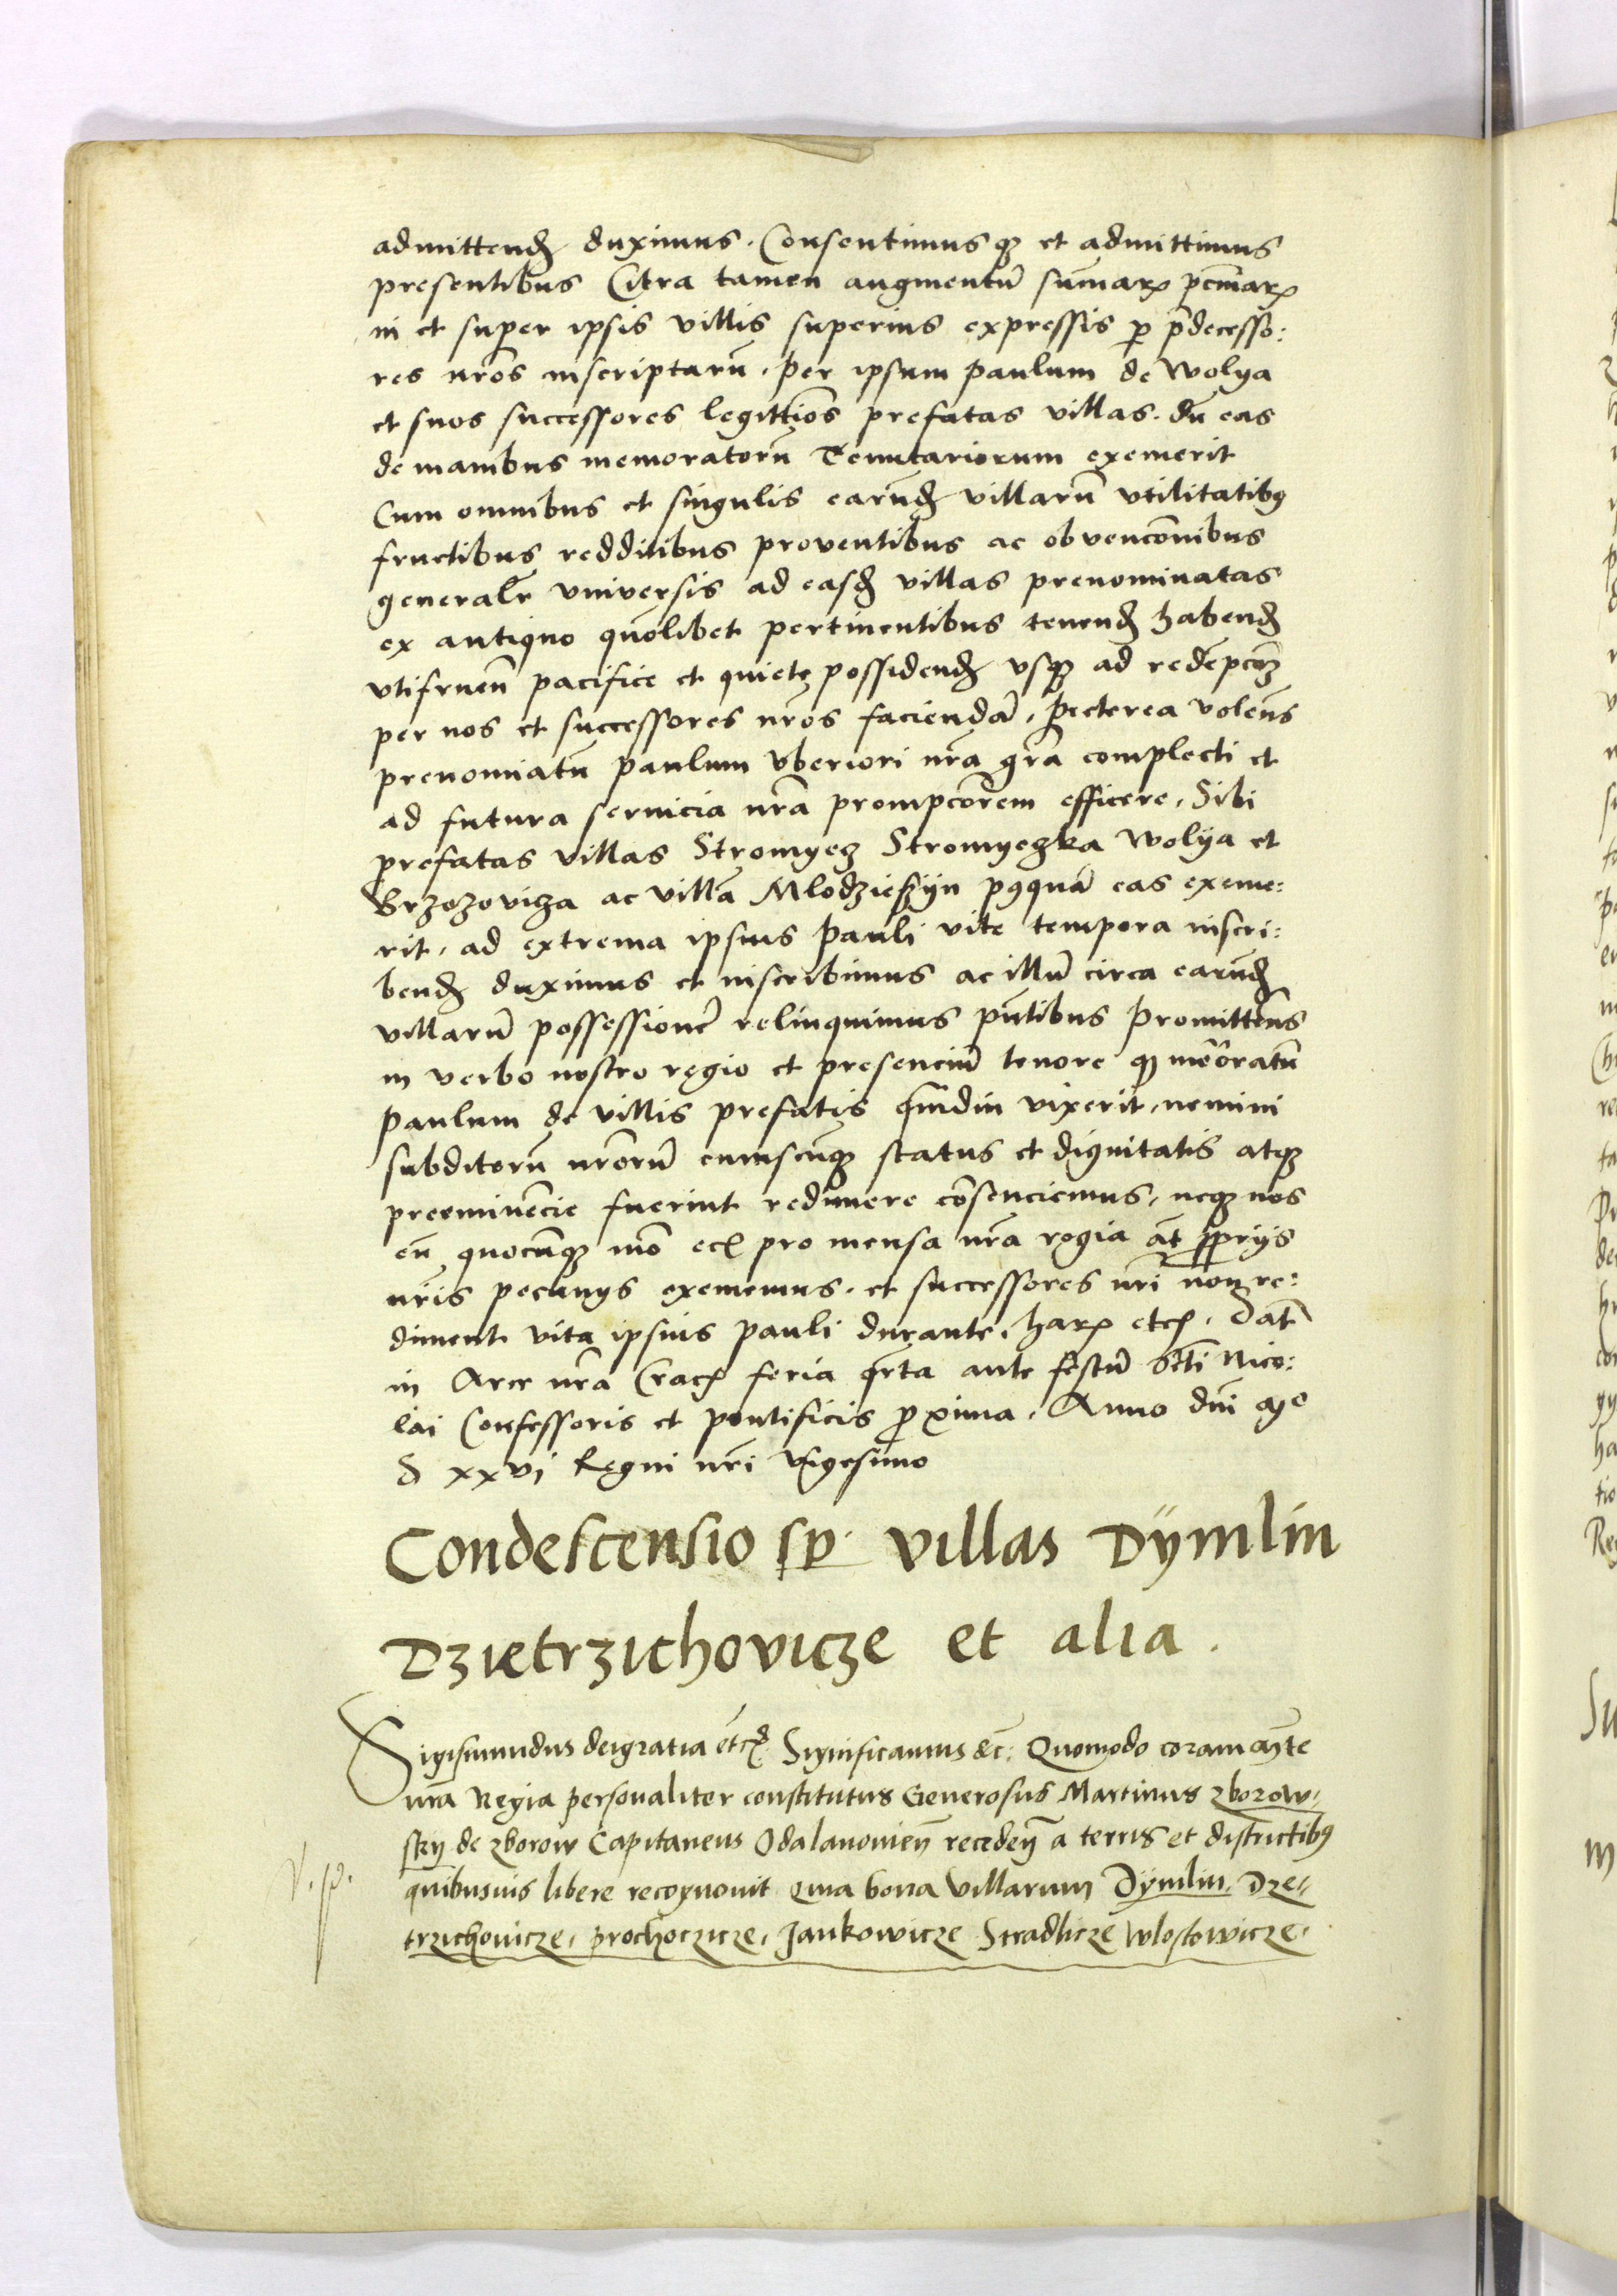 admittend duximus. Consentimusq et admittimus
presentibus Citra tamen augmentu sumar pcuniar
in et super ipsis villis superius expressis p pdecesso:
res nros inscriptaru. per ipsum paulum de wolya
et suos successores legittios prefatas villas. du eas
de manibus memoratoru Tenutariorum exemerit
Cum omnibus et singulis earud villaru vtilitatibq
fructibus redditibus proventibus ac obvenconibus
generalr vniversis ad easd villas prenominatas
ex antiquo quolibet pertinentibus tenend habend
vtifruen pacifice et quiete possidend vsq ad redempcoz
per nos et successores nros faciendā. Preterea volens
prenomiatu paulum vberiori nra gra complecti et
ad futura servicia nra prompcorem efficere. Sibi
prefatas villas Stromyecz Stromyeczka Wolya et
Brzozovicza ac villa Mlodzieszyn pqquā eas exeme:
rit. ad extrema ipsius Pauli vite tempora inscri:
bend duximus et inscribimus ac illū circa earud
villarū possessione relinquimus pntibus Promittens
in verbo nostro regio et presenciū tenore q memoratu
Paulum de villis prefatis qmdiu vixerit, nemini
subditoru nrorū cuiuscunq status et dignitatis atq
preeminencie fuerint redimere consenciemus, neq nos
eu quocunq mo ecz pro mensa nra regia at pprijs
nris pecunijs exememus. et successores nri non re:
diment vita ipsius Pauli durante. har etc. Dat
in Arce nra Crac feria qrta ante festū Scti Nico:
lai Confessoris et pontificis pxima. Anno dni Mo
D xxvj Regni nri Vigesimo
Condescensio sp villas Dÿmlin
Dzietrzichovicze et alia.
Sigismundus dei gratia etc Significamus &c: Quomodo coram Mte
nra Regia personaliter constitutus Generosus Martinus zborow-
sky de zborow Capitaneus Odalanovien receden a terris et districtibq
V. p.
quibusuis libere recognouit Quia bona villarum Dÿmlin. Dze-
trzichovicze, prochoczicze, Jankowicze Stradlicze Wlostowicze.